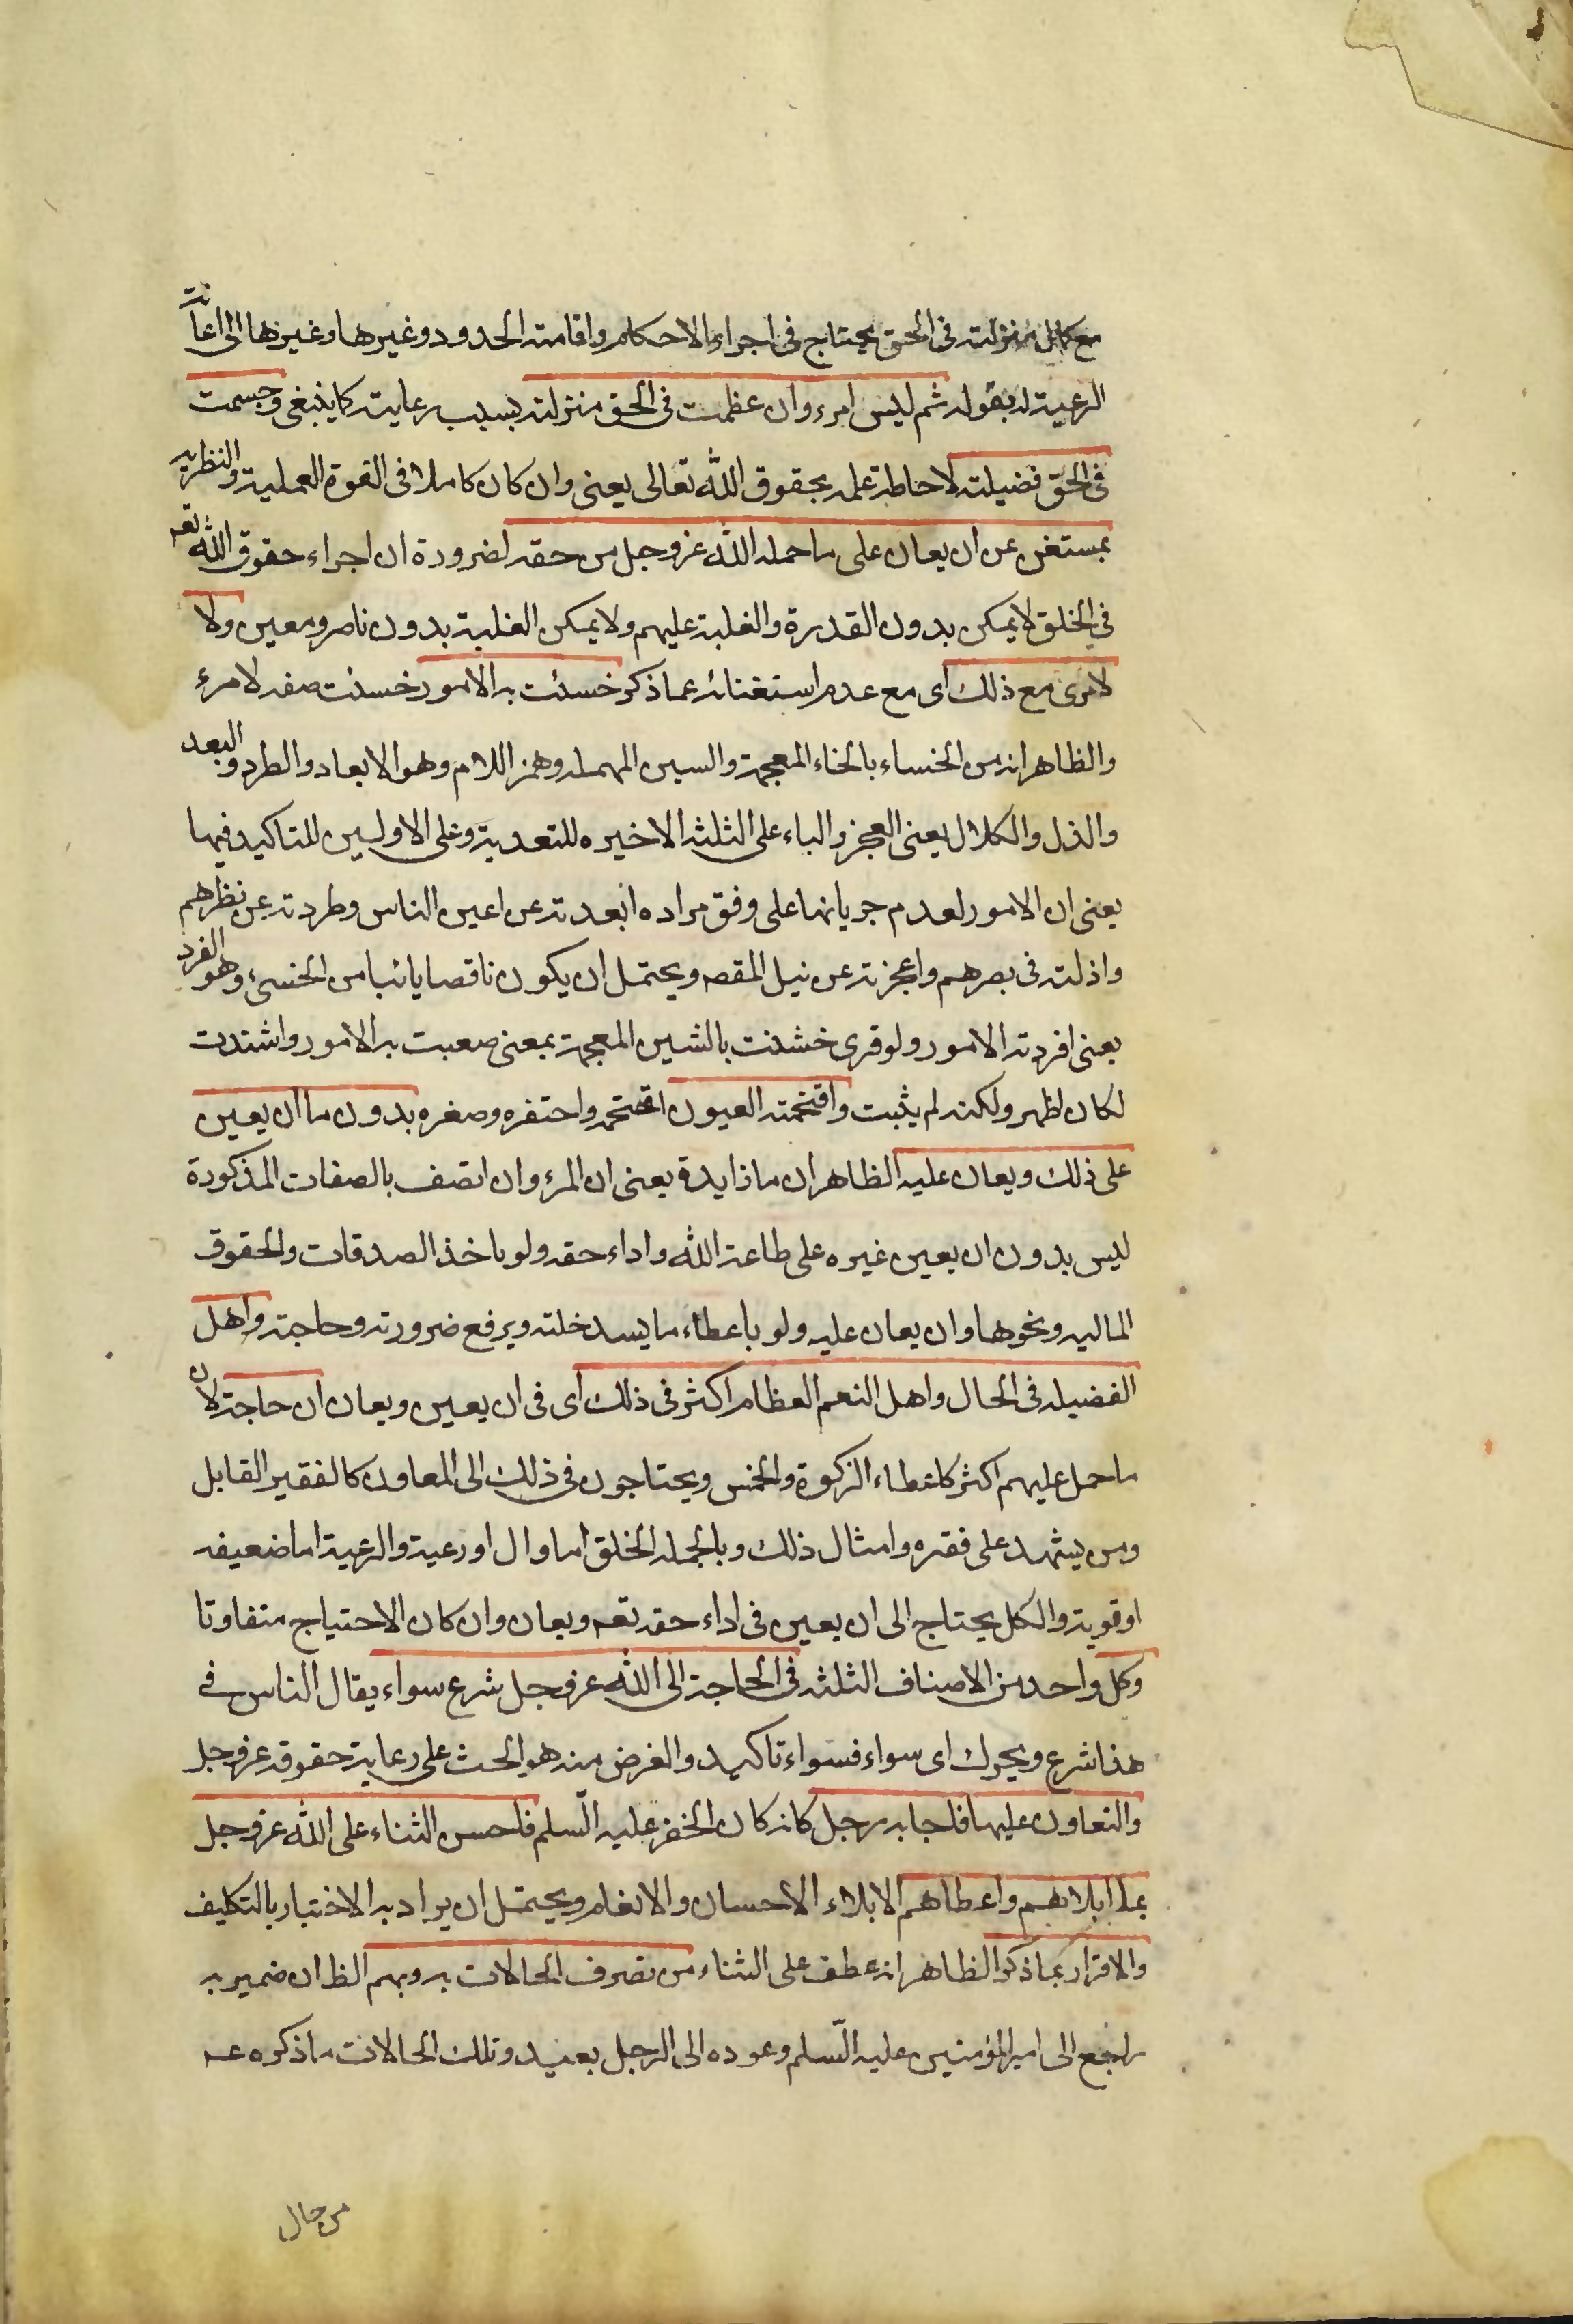 مع كمال منزلته فى الحق يحتاج فى اجراء الاحكام واقامة الحدود وغيرها وغيرها الى اعانة
الرعية له بقوله ثم ليس امرء وان عظمت فى الحق منزلته بسبب رعايته كما ينبغى وجسمت
فى الحق فضيلته لاحاطة علمه بحقوق الله تعالى يعنى وان كان كاملا فى القوة العملية والنظريه
بمستغن عن ان يعان على ما حمله الله عز وجل من حقه لضرورة ان اجراء حقوق الله تعه
فى الخلق لا يمكن بدون القدرة والغلبة عليهم ولا يمكن الغلبة بدون ناصر ومعين ولا
لامرئ مع ذلك اى مع عدم استغنائه عما ذكر خسئت به الامور خسئت صفه لامرء
والظاهر انه من الخساء بالخاء المعجمة والسين المهمله وهمز اللام وهو الابعاد والطرد والبعد
والذل والكلال يعنى العجز والباء على الثلثه الاخيره للتعدية وعلى الاولين للتاكيد فيها
يعنى ان الامور لعدم جريانها على وفق مراده ابعدته عن اعين الناس وطردته عن نظرهم
واذلته فى بصرهم واعجزته عن نيل المقصه ويحتمل ان يكون ناقصا يائيا من الخسئ وهو الفرد
يعنى افردته الامور ولو قرى خشنت بالشين المعجمة بمعنى صعبت به الامور واشتدت
لكان اظهر ولكنه لم يثبت واقتحمته العيون اقتحمه واحتقره وصغره بدون ما ان يعين
على ذلك ويعان عليه الظاهر ان ما زايدة يعنى ان المرء وان اتصف بالصفات المذكورة
ليس بدون ان يعين غيره على طاعة الله واداء حقه ولو باخذ الصدقات والحقوق
الماليه ونحوها وان يعان عليه ولو باعطاء ما يسد خلته ويرفع ضرورته وحاجته واهل
الفضيله فى الحال واهل النعم العظام اكثر فى ذلك اى فى ان يعين ويعان ان حاجة لان
ما حمل عليهم اكثر كاعطاء الزكوة والخمس ويحتاجون فى ذلك الى المعاون كالفقير القابل
ومن يشهد على فقره وامثال ذلك وبالجمله الخلق اما وال او رعية والرعية اما ضعيفه
او قوية والكل يحتاج الى ان يعين فى اداء حقه تعه ويعان وان كان الاحتياج متفاوتا
وكل واحد من الاصناف الثلثه فى الحاجة الى الله عز وجل شرع سواء يقال الناس فى
هذا شرع ويحرك اى سواء فسواء تاكيد والغرض منه هو الحث على رعاية حقوقه عز وجل
والتعاون عليها فاجابه رجل كانه كان الخضر عليه السّلم فاحسن الثناء على الله عز وجل
بما ابلاهم واعطاهم الابلاء الاحسان والانعام ويحتمل ان يراد به الاختبار بالتكليف
والاقرار بما ذكر الظاهر انه عطف على الثناء من تصرف الحالات به وبهم الظ ان ضمير به
راجع الى امير المؤمنين عليه السّلم وعوده الى الرجل بعيد وتلك الحالات ما ذكره عه
من حال